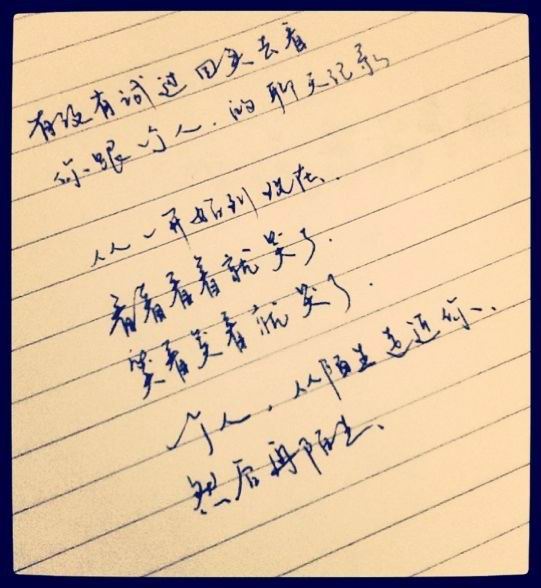 有没有试过回头去看
你跟一个人的聊天记录
从一开始到现在.
看着看着就笑了.
笑着笑着就哭了.
一个人，从陌生走近你、
然后再陌生、